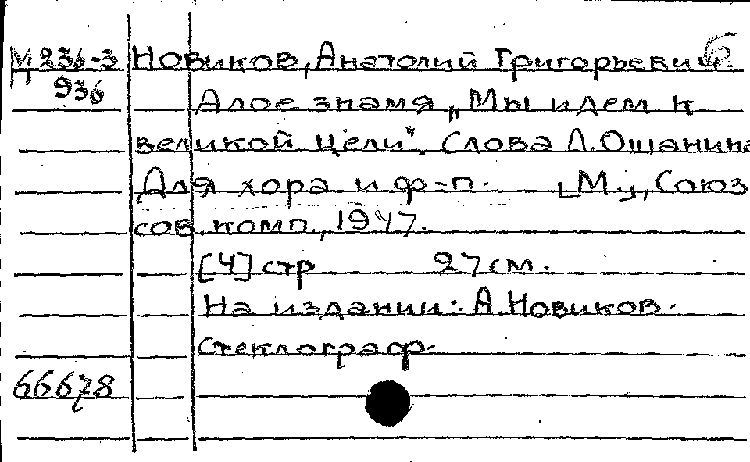 М 236-3 Новиков, Анатолий Григорьевич
936 Алое знамя „Мы идем к
великой цели". Слова Л. Ошанина
Для хора и ф=п. [М.], Союз
сов. комп., 1947.
[4] стр 27 см.
На издании: А. Новиков.
Стеклограф.
66678